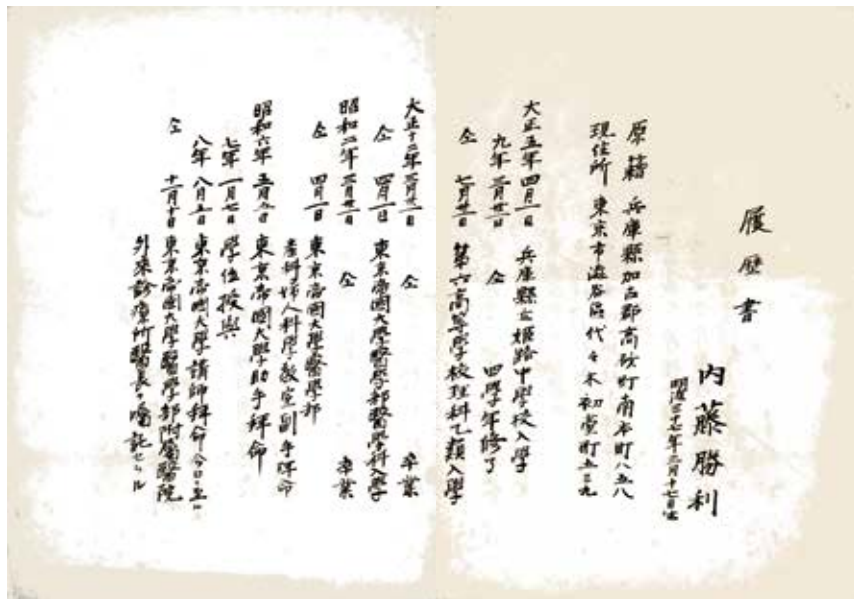 履歴書
内藤勝利
明治三十七年二月十七日生
原籍 兵庫縣加古郡高砂町南本町八五八
現住所 東京市澁谷區代々木初臺町五三九
大正五年四月一日 兵庫縣立姫路中學校入學
九年三月廿一日 仝 四學年修了
仝 七月廿一日 第六高等學校理科乙類入學
大正十二年三月廿一日 仝 卒業
仝 四月一日 東京帝國大學醫學部醫學科入學
昭和二年三月廿一日 仝 卒業
仝 四月一日 東京帝國大學醫學部
産科婦人科學教室副手拝命
昭和六年 五月 日 東京帝國大學助手拝命
七年 一月七日 學位授與
八年 八月 日 東京帝國大學講師拝命今日ニ至ル
仝 十一月十日 東京帝國大學醫學部附属醫院
外来診療所醫長ヲ嘱託セラル